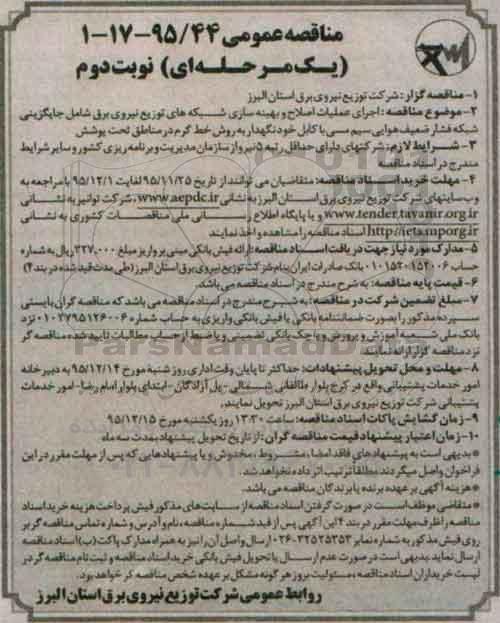 مناقصه عمومی ۹۵/۴۴-۱۷-۱
(یک مرحله‌ای) نوبت دوم
۱- مناقصه گزار: شرکت توزیع نیروی برق استان البرز
۲- موضوع مناقصه: اجرای عملیات اصلاح و بهینه سازی شبکه های توزیع نیروی برق شامل جایگزینی
شبکه فشار ضعیف هوایی سیم مسی با کابل خودنگهدار به روش خط گرم در مناطق تحت پوشش
۳- شرایط لازم: شرکتهای دارای حداقل رتبه ۵ نیرو از سازمان مدیریت و برنامه ریزی کشور و سایر شرایط
مندرج در اسناد مناقصه
۴- مهلت خرید اسناد مناقصه: متقاضیان می توانند از تاریخ ۹۵/۱۱/۲۵ لغایت ۹۵/۱۲/۱ با مراجعه به
وب سایتهای شرکت توزیع نیروی برق استان البرز به نشانی www.aepdc.ir، شرکت توانیر به نشانی
www.tender.tavanir.org.ir و یا پایگاه اطلاع رسانی ملی مناقصات کشوری به نشانی
http://iets.mporg.ir اسناد مناقصه را مشاهده و اخذ نمایند
۵- مدارک مورد نیاز جهت دریافت اسناد مناقصه: ارائه فیش بانکی مبنی بر واریز مبلغ ۳۲۷,۰۰۰ ریال به شماره
حساب ۰۱۰۱۵۲۰۱۵۲۰۰۶ بانک صادرات ایران بنام شرکت توزیع نیروی برق استان البرز (طی مدت قید شده در بند ۴)
۶- قیمت پایه مناقصه: به شرح مندرج در اسناد مناقصه می باشد.
۷- مبلغ تضمین شرکت در مناقصه: به شرح مندرج در اسناد مناقصه می باشد که مناقصه گران بایستی
سپرده مذکور را بصورت ضمانتنامه بانکی یا فیش بانکی واریزی به حساب شماره ۰۱۰۳۷۹۵۱۲۶۰۰۶ نزد
بانک ملی شعبه آموزش و پرورش و یا چک بانکی تضمینی و یا ضبط از حساب مطالبات تایید شده مناقصه گر
نزد مناقصه گزار ارائه نمایند.
۸- مهلت و محل تحویل پیشنهادات: حداکثر تا پایان وقت اداری روز شنبه مورخ ۹۵/۱۲/۱۴ به دبیرخانه
امور خدمات پشتیبانی واقع در کرج بلوار طالقانی شمالی - پل آزادگان - ابتدای بلوار امام رضا - امور خدمات
پشتیبانی شرکت توزیع نیروی برق استان البرز تحویل نمایند.
۹- زمان گشایش پاکات اسناد مناقصه: ساعت ۱۳:۳۰ روز یکشنبه مورخ ۹۵/۱۲/۱۵
۱۰- زمان اعتبار پیشنهاد قیمت مناقصه گران: از تاریخ تحویل پیشنهاد بمدت سه ماه
* بدیهی است به پیشنهادهای فاقد امضاء، مشروط، مخدوش و یا پیشنهادهایی که پس از مهلت مقرر در این
فراخوان واصل میگردند مطلقا ترتیب اثر داده نخواهد شد.
* هزینه آگهی بر عهده برنده یا برندگان مناقصه می باشد.
* متقاضی موظف است در صورت گرفتن اسناد مناقصه از سایت های مذکور فیش پرداخت هزینه خرید اسناد
مناقصه را ظرف مهلت مقرر در بند ۴ این آگهی پس از قید شماره مناقصه، نام و آدرس و شماره تماس مناقصه گر بر
روی فیش مذکور به شماره نمابر ۳۲۵۲۵۳۵۳-۰۲۶ ارسال و اصل آن را نیز به همراه مدارک پاکت (ب) اسناد مناقصه
ارسال نماید. بدیهی است در صورت عدم ارسال یا تحویل فیش بانکی خرید اسناد مناقصه و ثبت نام مناقصه گر در
لیست خریداران اسناد مناقصه، مسئولیت بروز هر گونه مشکل بر عهده شخص مناقصه گر خواهد بود.
روابط عمومی شرکت توزیع نیروی برق استان البرز